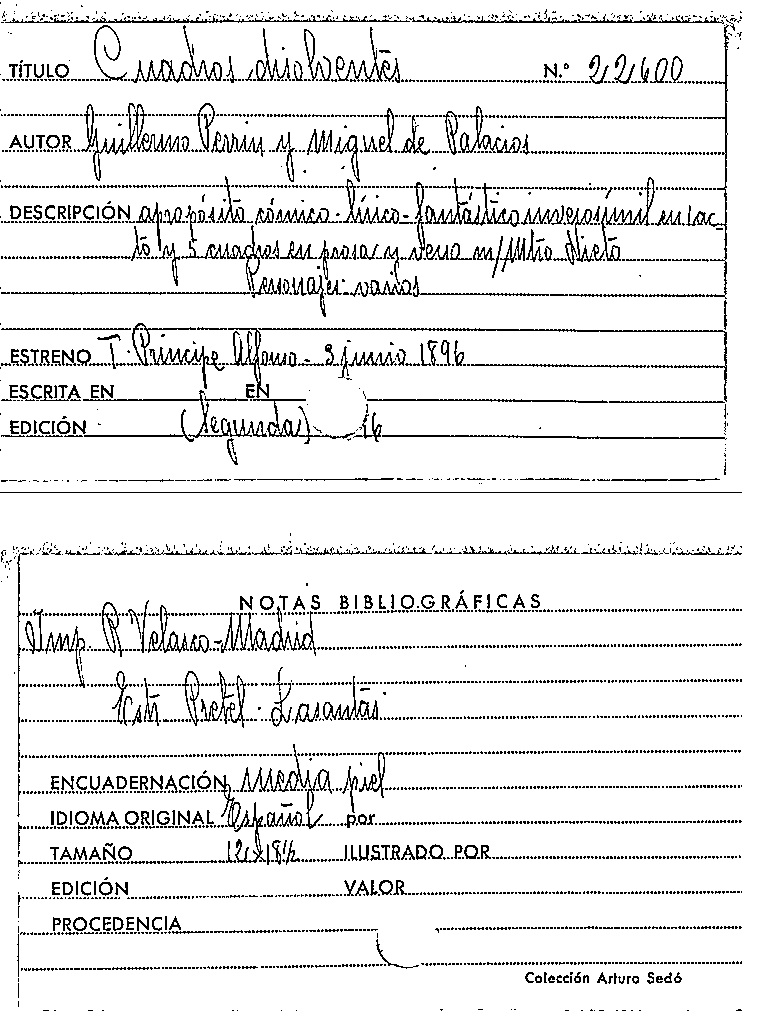 TÍTULO Cuadros disolventes N.º 22600
AUTOR Guillermo Perrin y Miguel de Palacios
DESCRIPCIÓN apropósito cómico-lírico-fantástico inverosímil en 1 ac-
to y 5 cuadros en prosa y verso m/ Mtro Nieto
Personajes: varios
ESTRENO T. Príncipe Alfonso - 3 junio 1896
ESCRITA EN EN
EDICIÓN (Segunda)
NOTAS BIBLIOGRÁFICAS
Imp. R Velasco-Madrid
Estr Pretel - Lasantas
ENCUADERNACIÓN media piel
IDIOMA ORIGINAL Español por
TAMAÑO 12x18½ ILUSTRADO POR
EDICIÓN VALOR
PROCEDENCIA
Colección Arturo Sedó